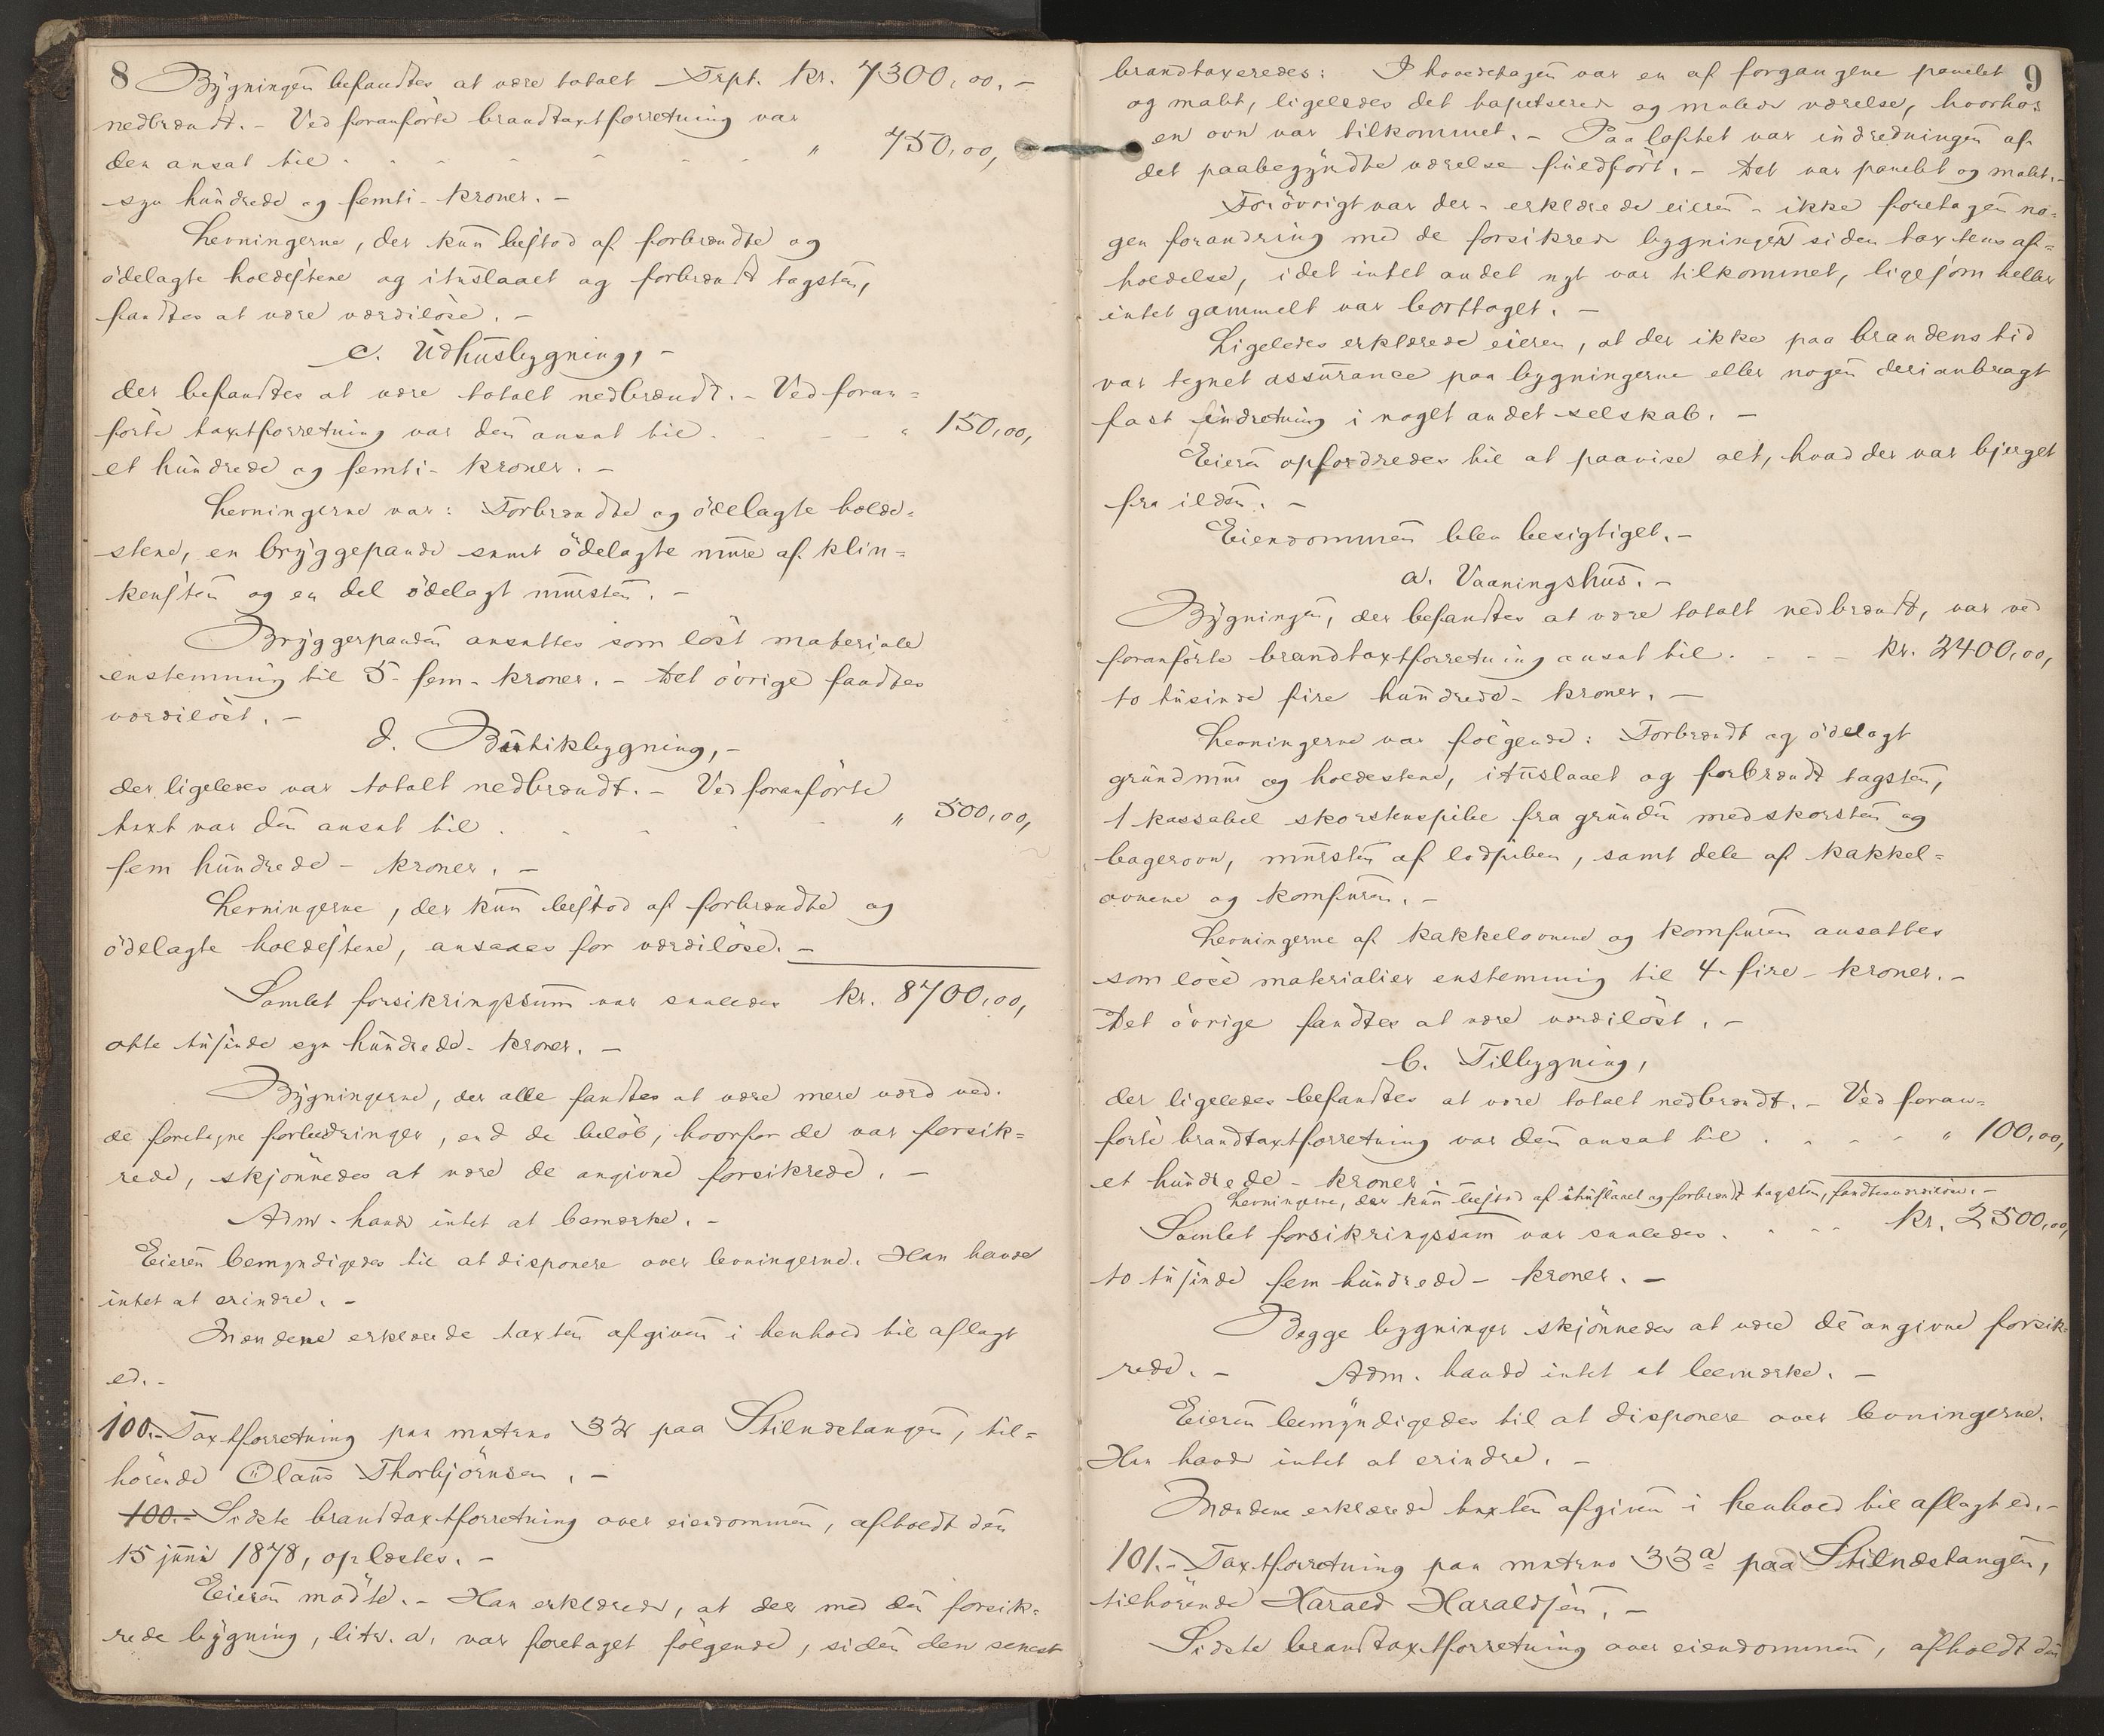 8 Bygningen befandtes at være totalt Trpt. kr. 7300,00,-
nedbrændt. - Ved foranførte brandtaxtforretning var
den ansat til . - - - - - - " 750,00,
syv hundrede og femti - kroner. -
Levningerne, der kun bestod af forbrændte og
ödelagte holdestene og ituslaaet og forbrændt tagsten,
fandtes at være værdilöse. -
c. Udhusbygning, -
der befandtes at være totalt nedbrændt. - Ved foran=
förte taxtforretning var den ansat til . - - - " 150,00,
et hundrede og femti - kroner. -
Levningerne var: Forbrændte og ödelagte holde=
stene, en bryggepande samt ödelagte mure af klin=
kensten og en del ödelagt mursten. -
Bryggerpanden ansattes som löst materiale
enstemmig til 5 - fem - kroner. - Det övrige fandtes
værdilöst. -
d. Butikbygning, -
der ligeledes var totalt nedbrændt. - Ved foranförte
taxt var den ansat til . - - - - " 500,00,
fem hundrede - kroner. -
Levningerne, der kun bestod af forbrændte og
ödelagte holdestene, ansaaes for værdilöse. -
Samlet forsikringssum var saaledes kr. 8700,00,
otte tusinde syv hundrede - kroner. -
Bygningerne, der alle fandtes at være mere værd ved.
de foretagne forbedringer, end de belöb, hvorfor de var forsik=
rede, skjönnedes at være de angivne forsikrede. -
Adm. havde intet at bemærke. -
Eieren bemyndigedes til at disponere over levningerne. Han havde
intet at erindre. -
Mændene erklærede taxten afgiven i henhold til aflagt
ed. -
100. - Taxtforretning paa matrno 32 paa Stilnæstangen, til=
hörende Olaus Thorbjörnsen. -
100. - Sidste brandtaxtforretning over eiendommen, afholdt den
15 juni 1878, oplæstes. -
Eieren mödte. - Han erklærede, at der med den forsik=
rede bygning, litr. a. var foretaget fölgende, siden den senest
brandtaxeredes: I hovedetagen var en af forgangene panelet 9
og malet, ligeledes det tapetserede og malede værelse, hvorhos
en ovn var tilkommet. - Paa loftet var indredningen af
det paabegyndte værelse fuldfört. - Det var panelet og malet. -
Forövrigt var der - erklærede eieren - ikke foretagen no=
gen forandring med de forsikrede bygninger siden taxtens af=
holdelse, idet intet andet nyt var tilkommet, ligesom heller
intet gammelt var borttaget. -
Ligeledes erklærede eieren, at der ikke paa brandens tid
var tegnet assurance paa bygningerne eller nogen deri anbragt
fast indretning i noget andet selskab. -
Eieren opfordredes til at paavise alt, hvad der var bjerget
fra ilden. -
Eiendommen blev besigtiget. -
a. Vaaningshus. -
Bygningen, der befandtes at være totalt nedbrændt, var ved
foranförte brandtaxtforretning ansat til . - - - kr. 2400,00,
to tusinde fire hundrede - kroner. -
Levningerne var fölgende: Forbrændt og ödelagt
grundmur og holdestene, ituslaaet og forbrændt tagsten,
1 kassabel skorstenspibe fra grunden med skorsten og
bagerovn, mursten af lodpiben, samt dele af kakkel=
ovnene og komfuren. -
Levningerne af kakkelovnene og komfuren ansattes
som löse materialier enstemmig til 4 - fire - kroner. -
Det övrige fandtes at være værdilöst. -
b. Tilbygning,
der ligeledes befandtes at være totalt nedbrændt. - Ved foran=
förte brandtaxtforretning var den ansat til . - - - " 100,00,
et hundrede - kroner. -
Levningerne, der kun bestod af ituslaaet og forbrændt tagsten, fandtes værdilöse. -
Samlet forsikringssum var saaledes . - - - kr. 2500,00,
to tusinde fem hundrede - kroner. -
Begge bygninger skjönnedes at være de angivne forsik=
rede. - Adm. havde intet at bemærke. -
Eieren bemyndigedes til at disponere over levningerne.
Han havde intet at erindre. -
Mændene erklærede taxten afgiven i henhold til aflagt ed. -
101. - Taxtforretning paa matrno 33a paa Stilnæstangen,
tilhörende Harald Haraldsen. -
Sidste brandtaxtforretning over eiendommen, afholdt den